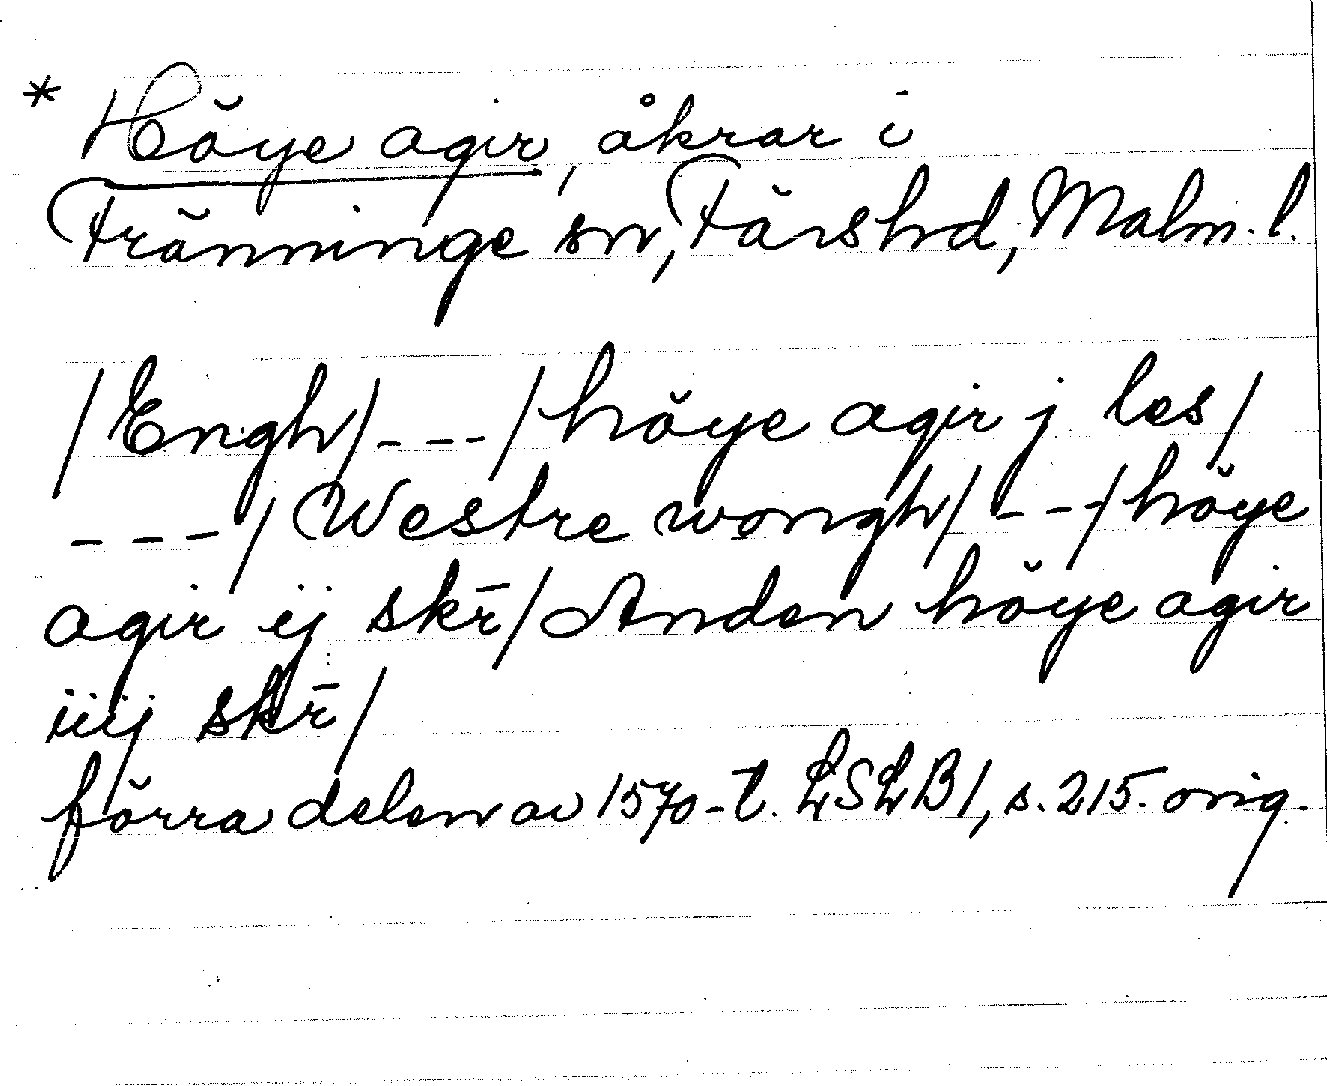 * Höye agir, åkrar i
Fränninge sn, Färs hd, Malm. l.
/Engh/ - - - /höye agir j les/
- - - / Westre wongh/ - - - /höye
agir ij skr̄/ Anden höye agir
iiij skr̄/
förra delen av 1570-t. LSLB1, s. 215. orig.